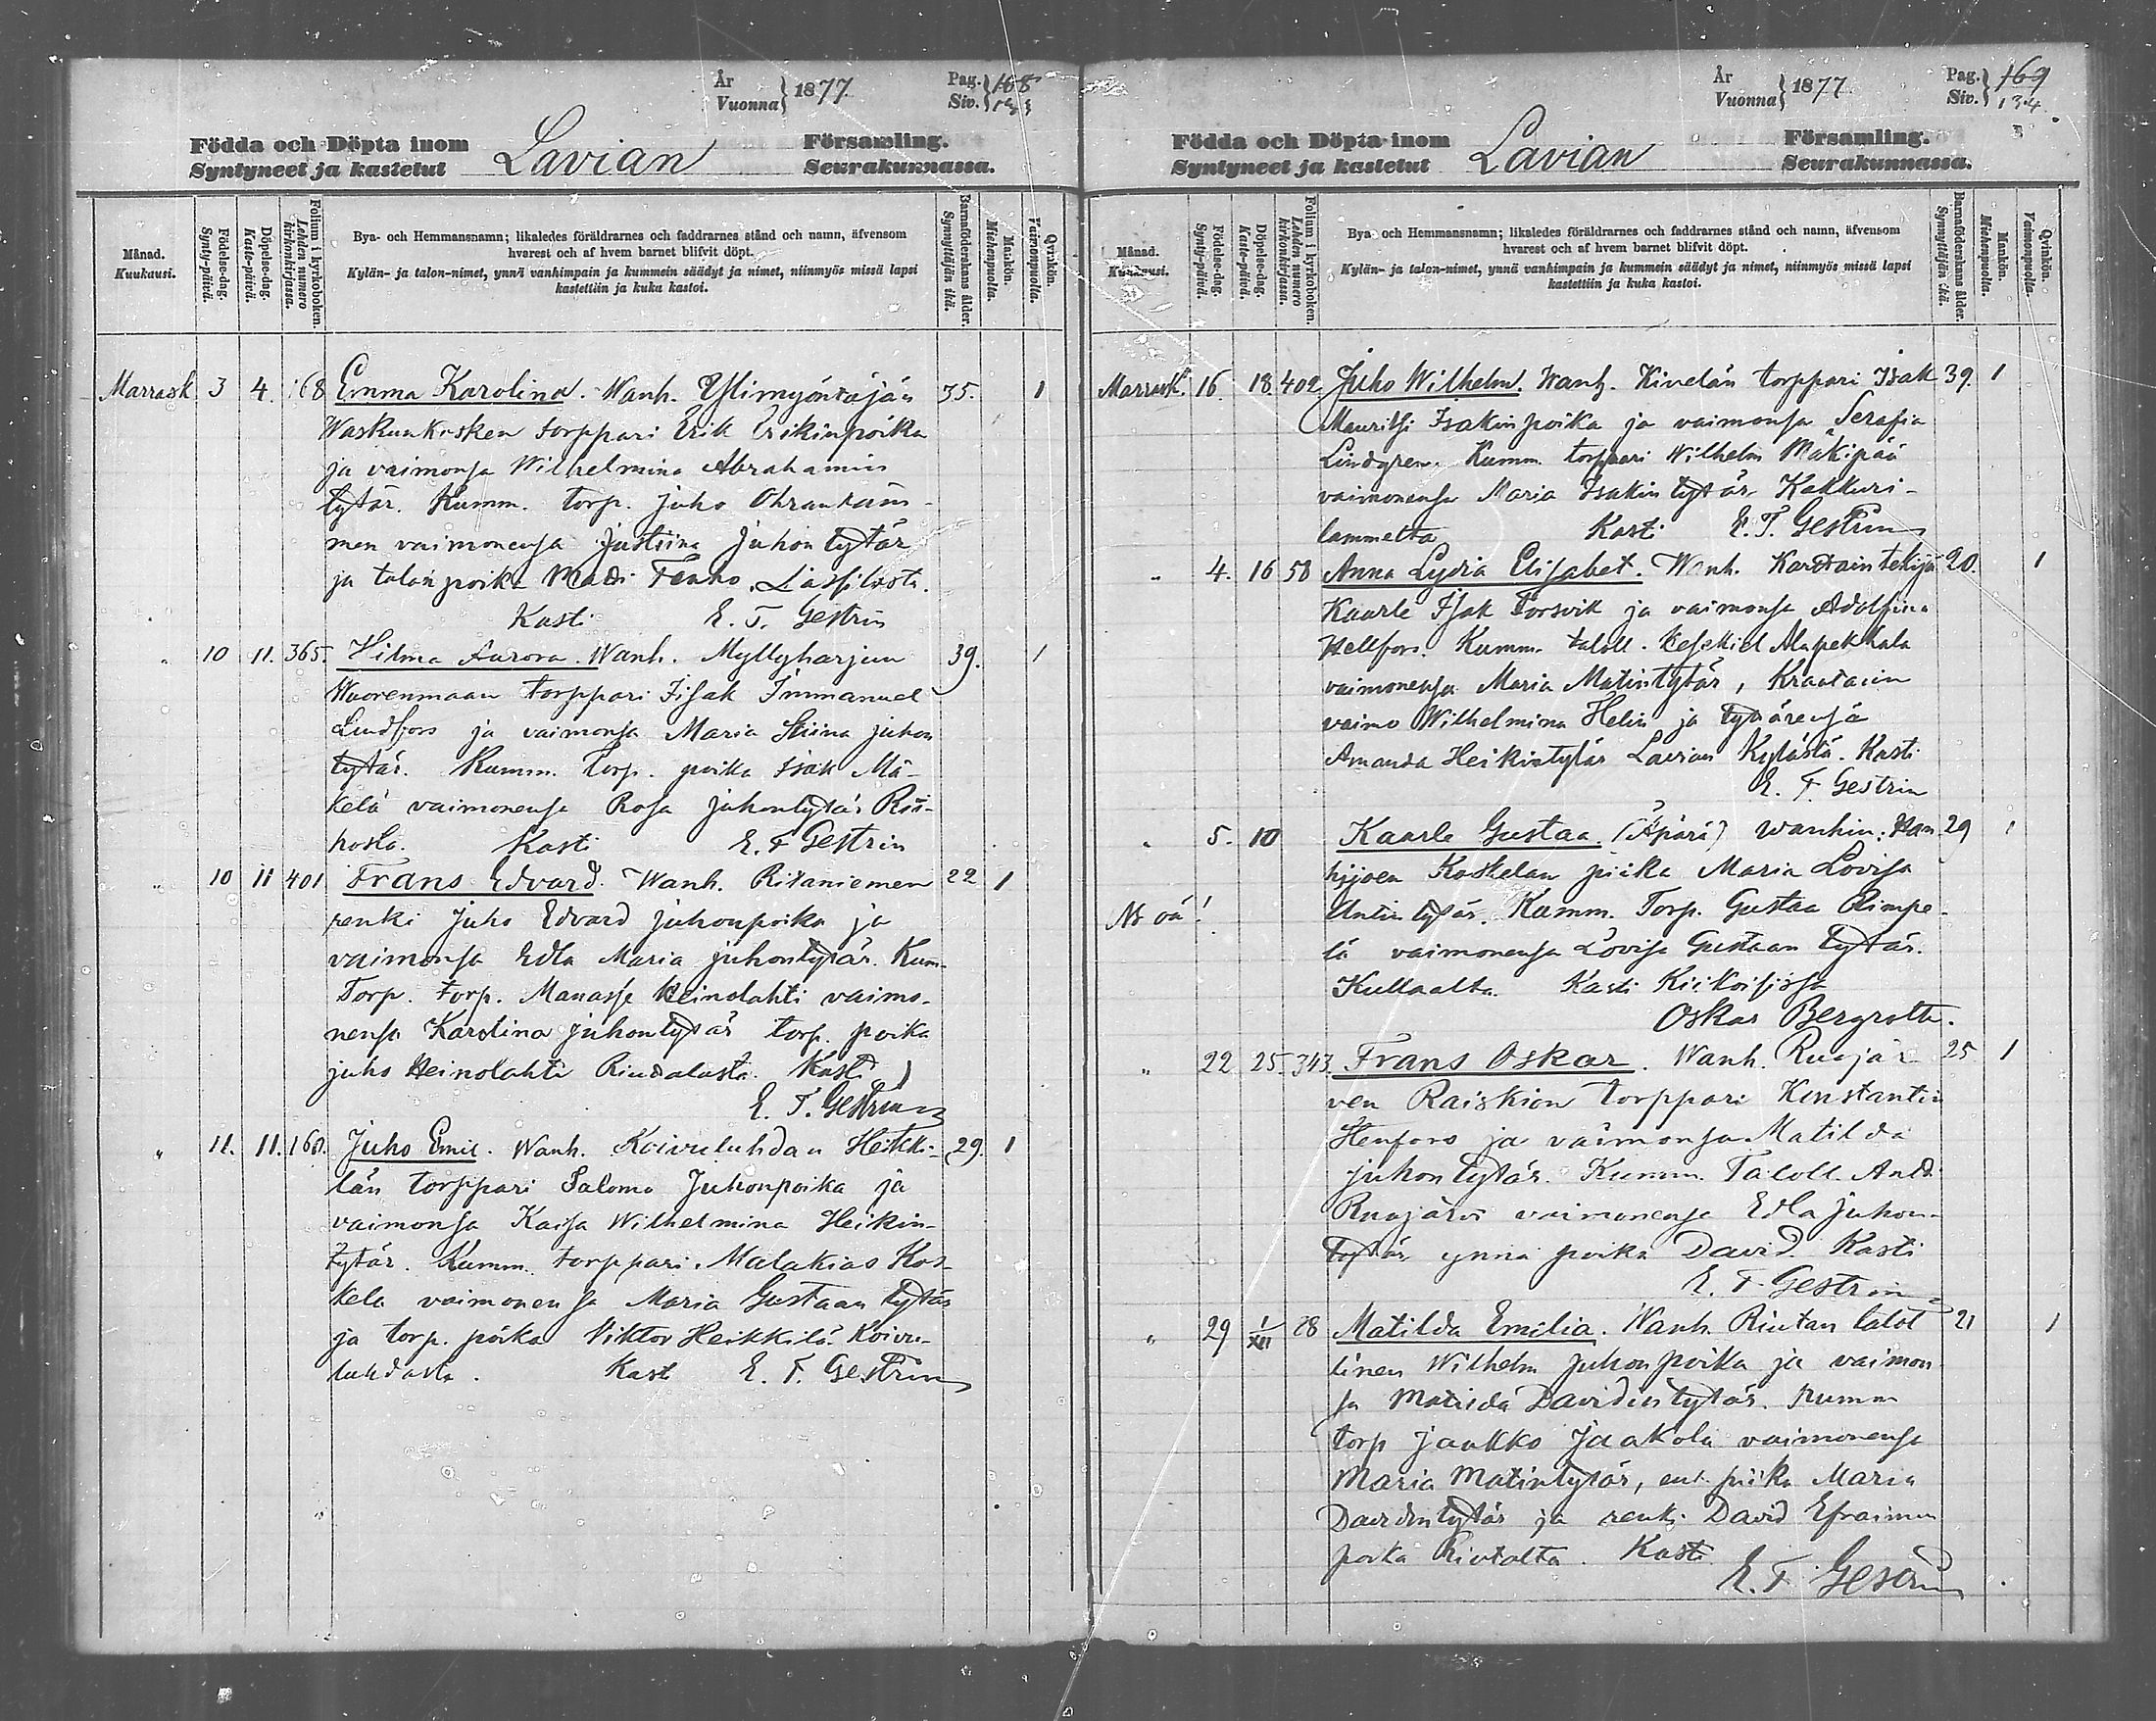 År
Vuonna } 1877.
Pag.
Siv. } 168
Födda och Döpta inom
Syntyneet ja kastetut
Lavian
Församling.
Seurakunnassa.
Månad.
Kuukausi.
Födelse-dag.
Synty-päivä.
Döpelse-dag.
Kaste-päivä.
Folium i kyrkoboken.
Lehden numero kirkonkirjassa.
Bya- och Hemmansnamn; likaledes föräldrarnes och faddrarnes stånd och namn, äfvensom
hvarest och af hvem barnet blifvit döpt.
Kylän- ja talon-nimet, ynnä vanhimpain ja kummein säädyt ja nimet, niinmyös missä lapsi
kastettiin ja kuka kastoi.
Barnaföderskans ålder.
Synnyttäjän ikä.
Mankön.
Miehenpuolta.
Qvinkön.
Vaimonpuolta.
Marrask. 3 4. 168 Emma Karolina. Wanh. Ylimyöntäjän 35. 1
Waskunkosken torppari Erik Erikinpoika
ja vaimonsa Wilhelmina Abrahamin
tytär. Kumm. torp. Juho Ohrantäm-
men vaimonensa Justiina Juhontytär
ja talonpoika Matti Tenho Lassilasta.
Kasti E. F. Gestrin
" 10 11. 365. Hilma Aurora. Wanh. Myllyharjun 39. 1
Wuorenmaan torppari Iisak Immanuel
Lindfors ja vaimonsa Maria Stiina Juhon
tytär. Kumm. Torp. poika Isak Mä-
kelä vaimonensa Rosa Juhontytär Rii-
hosta. Kasti E. F. Gestrin
" 10 11 401 Frans Edvard. Wanh. Ritaniemen 22 1
renki Juho Edvard Juhonpoika ja
vaimonsa Edla Maria Juhontytär. Kum.
Torp. torp. Manasse Heinolahti vaimo-
nensa Karolina Juhontytär torp. poika
Juho Heinolahti Riudalasta. Kasti
E. F. Gestrin
" 11. 11. 160. Juho Emil. Wanh. Koivuluhdan Heikki- 29. 1
län torppari Salomo Juhonpoika ja
vaimonsa Kaisa Wilhelmina Heikin-
tytär. Kumm. torppari Malakias Kos-
kela vaimonensa Maria Gustaan tytär
ja torp. poika Viktor Heikkilä Koivu-
luhdasta. Kast E. F. Gestrin
År
Vuonna } 1877.
Pag.
Siv. } 169
134.
Födda och Döpta inom
Syntyneet ja kastetut
Lavian
Församling.
Seurakunnassa.
Månad.
Kuukausi.
Födelse-dag.
Synty-päivä.
Döpelse-dag.
Kaste-päivä.
Folium i kyrkoboken.
Lehden numero kirkonkirjassa.
Bya- och Hemmansnamn; likaledes föräldrarnes och faddrarnes stånd och namn, äfvensom
hvarest och af hvem barnet blifvit döpt.
Kylän- ja talon-nimet, ynnä vanhimpain ja kummein säädyt ja nimet, niinmyös missä lapsi
kastettiin ja kuka kastoi.
Barnaföderskans ålder.
Synnyttäjän ikä.
Mankön.
Miehenpuolta.
Qvinkön.
Vaimonpuolta.
Marrask. 16. 18. 402. Juho Wilhelm. Wanh. Kivelän torppari Isak 39. 1
Mauritsi Isakinpoika ja vaimonsa Serafia
Lindgren. Kumm. torppari Wilhelm Mäkipää
vaimonensa Maria Isakintytär Kakkuri-
lammelta Kasti E. F. Gestrin
" 4. 16 58 Anna Lydia Elisabet. Wanh. Kardtaintekijä 20. 1
Kaarle Isak Forsvik ja vaimonsa Adolfina
Hellfors. Kumm. taloll. Hesekiel Alapekkala
vaimonensa Maria Matintytär, Kraatarin
vaimo Wilhelmina Helin ja tytärensä
Amanda Heikintytär Lavian Kylästä. Kasti
E. F. Gestrin
" 5. 10 Kaarle Gustaa. (Äpärä) wanhin: Ham 29 1
hijoen Koskelan piika Maria Lovisa
Nb oä! Antintytär. Kumm. Torp. Gustaa Rimpe-
lä vaimonensa Lovisa Gustaan tytär.
Kullaalta. Kasti Kiikoisissa
Oskar Bergroth.
" 22 25. 343. Frans Oskar. Wanh. Ruojär- 25. 1
ven Raiskion torppari Konstantin
Henfors ja vaimonsa Matilda
Juhontytär. Kumm. Taloll. Antti
Ruojärvi vaimonensa Edla Juhon-
tytär ynnä poika David. Kasti
E. F. Gestrin
" 29 1/XII 28 Matilda Emilia. Wanh. Riutan talol 21 1
linen Wilhelm Juhonpoika ja vaimon
sa Matilda Davidintytär. Kumm
torp Jaakko Jaakola vaimonensa
Maria Matintytär, ent. piika Maria
Davidintytär ja renki David Efraimin
poika Riutalta. Kasti
E. F. Gestrin